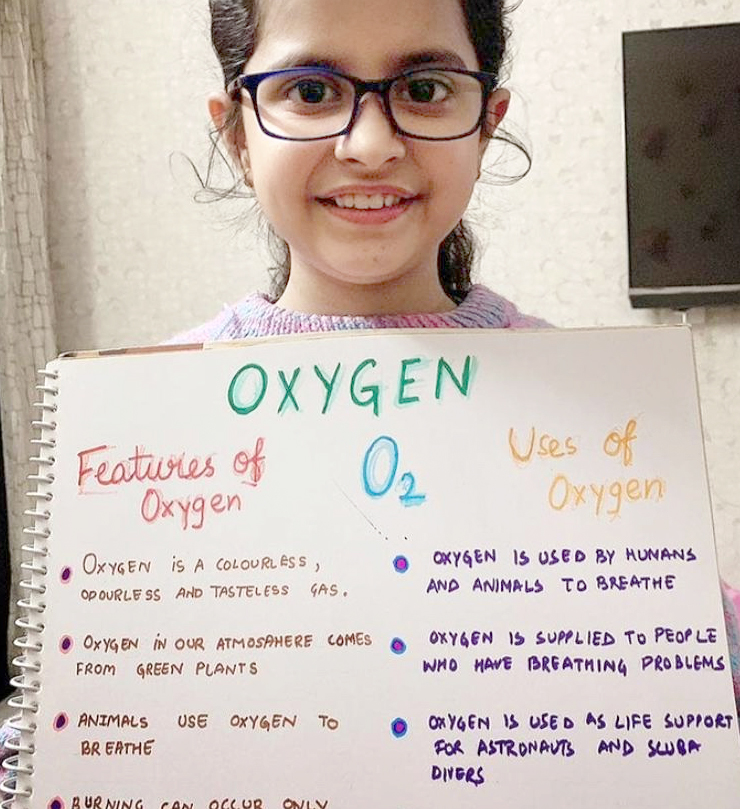 OXYGEN
Features of
Oxygen
O2
Uses of
Oxygen
OXYGEN IS A COLOURLESS,
ODOURLESS AND TASTELESS GAS.
OXYGEN IN OUR ATMOSPHERE COMES
FROM GREEN PLANTS
ANIMALS USE OXYGEN TO
BREATHE
BURNING CAN OCCUR ONLY
OXYGEN IS USED BY HUMANS
AND ANIMALS TO BREATHE
OXYGEN IS SUPPLIED TO PEOPLE
WHO HAVE BREATHING PROBLEMS
OXYGEN IS USED AS LIFE SUPPORT
FOR ASTRONAUTS AND SCUBA
DIVERS